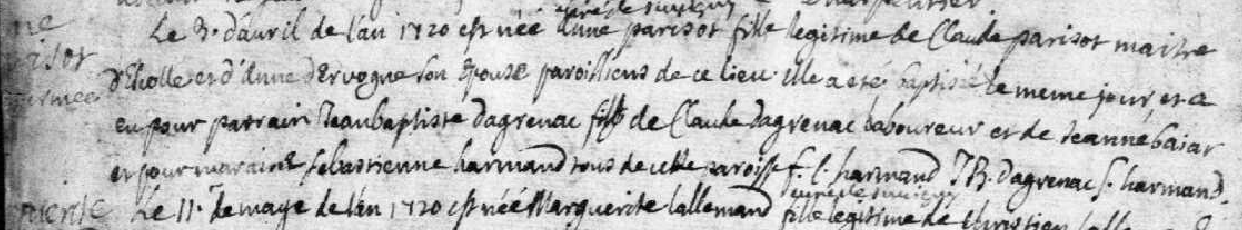 Le 3. d'auril de l'an 1720 est née Anne parisot fille legitime de Claude parisot maitre
d'Echolle et d'Anne dervogne son Epouse paroissiens de ce lieu. elle a eté baptisée le meme jour et a
eu pour parrain Jeanbaptiste dagrenac fils de Claude dagrenac laboureur et de Jeanne baiar
et pour maraine sebastienne harmand tous de cette paroisse f. C. harmand JB. dagrenac S. harmand.
Le 11. de maye de l'an 1720 est née Marguerite lallemand fille legitime de Christien